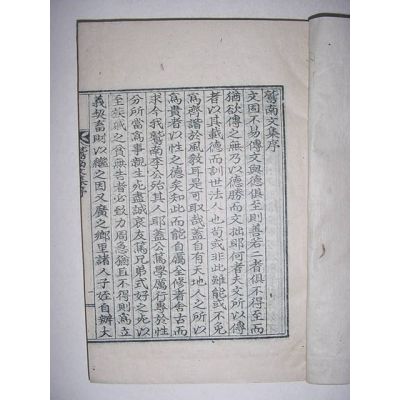 鷲南文集序
文固不易傳文與德俱至則善若二者俱不得至而
猶欲傳之無乃以德勝而文拙耶何者夫文所以傳
者以其載德而訓世法人也苟或非此雖能或不免
爲齊諧於風教耳是可取哉蓋自有天地人之所以
爲貴者以性之德矣知此而能自屬全修者古而
求今我鷲南李公殆其人耶蓋公篤學厲行專於性
分所當爲事親生死盡誠哀友篤兄弟式好之死以
至族戚之貧無告者必致力周急猶且不得則爲立
義契畜財以繼之因又廣之鄉里諸人子姪自辦大